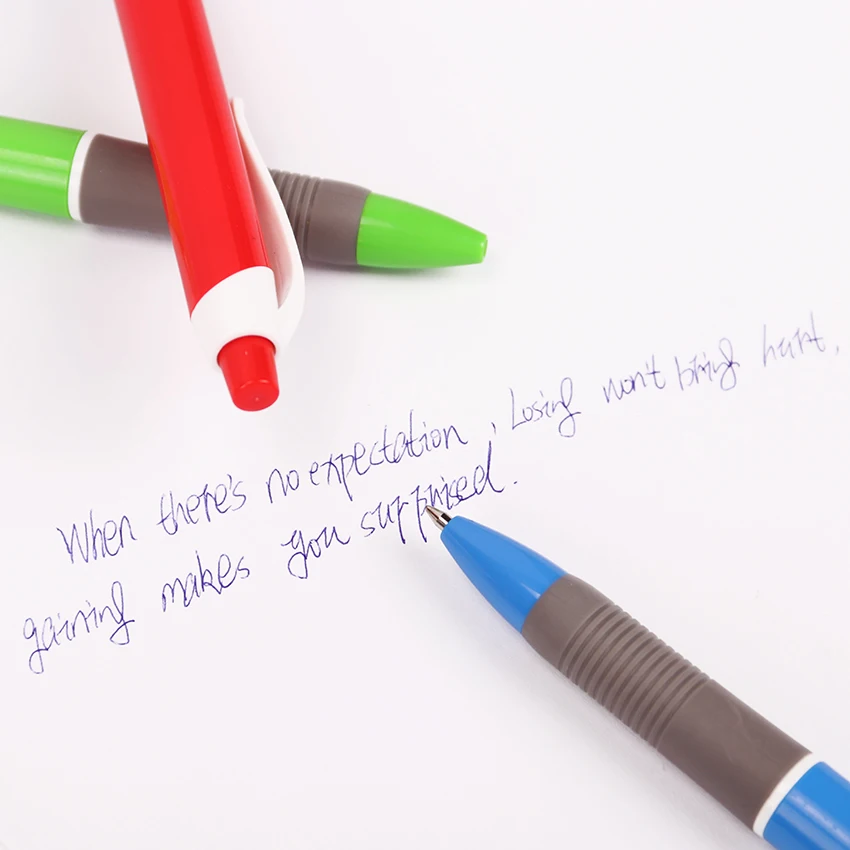 When there's no expectation, Losing won't bring hurt,
gaining makes you surprised.